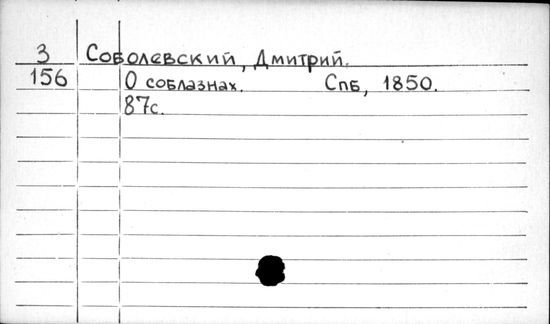 3 Соболевский, Дмитрий.
156 О соблазнах. Спб, 1850.
87с.